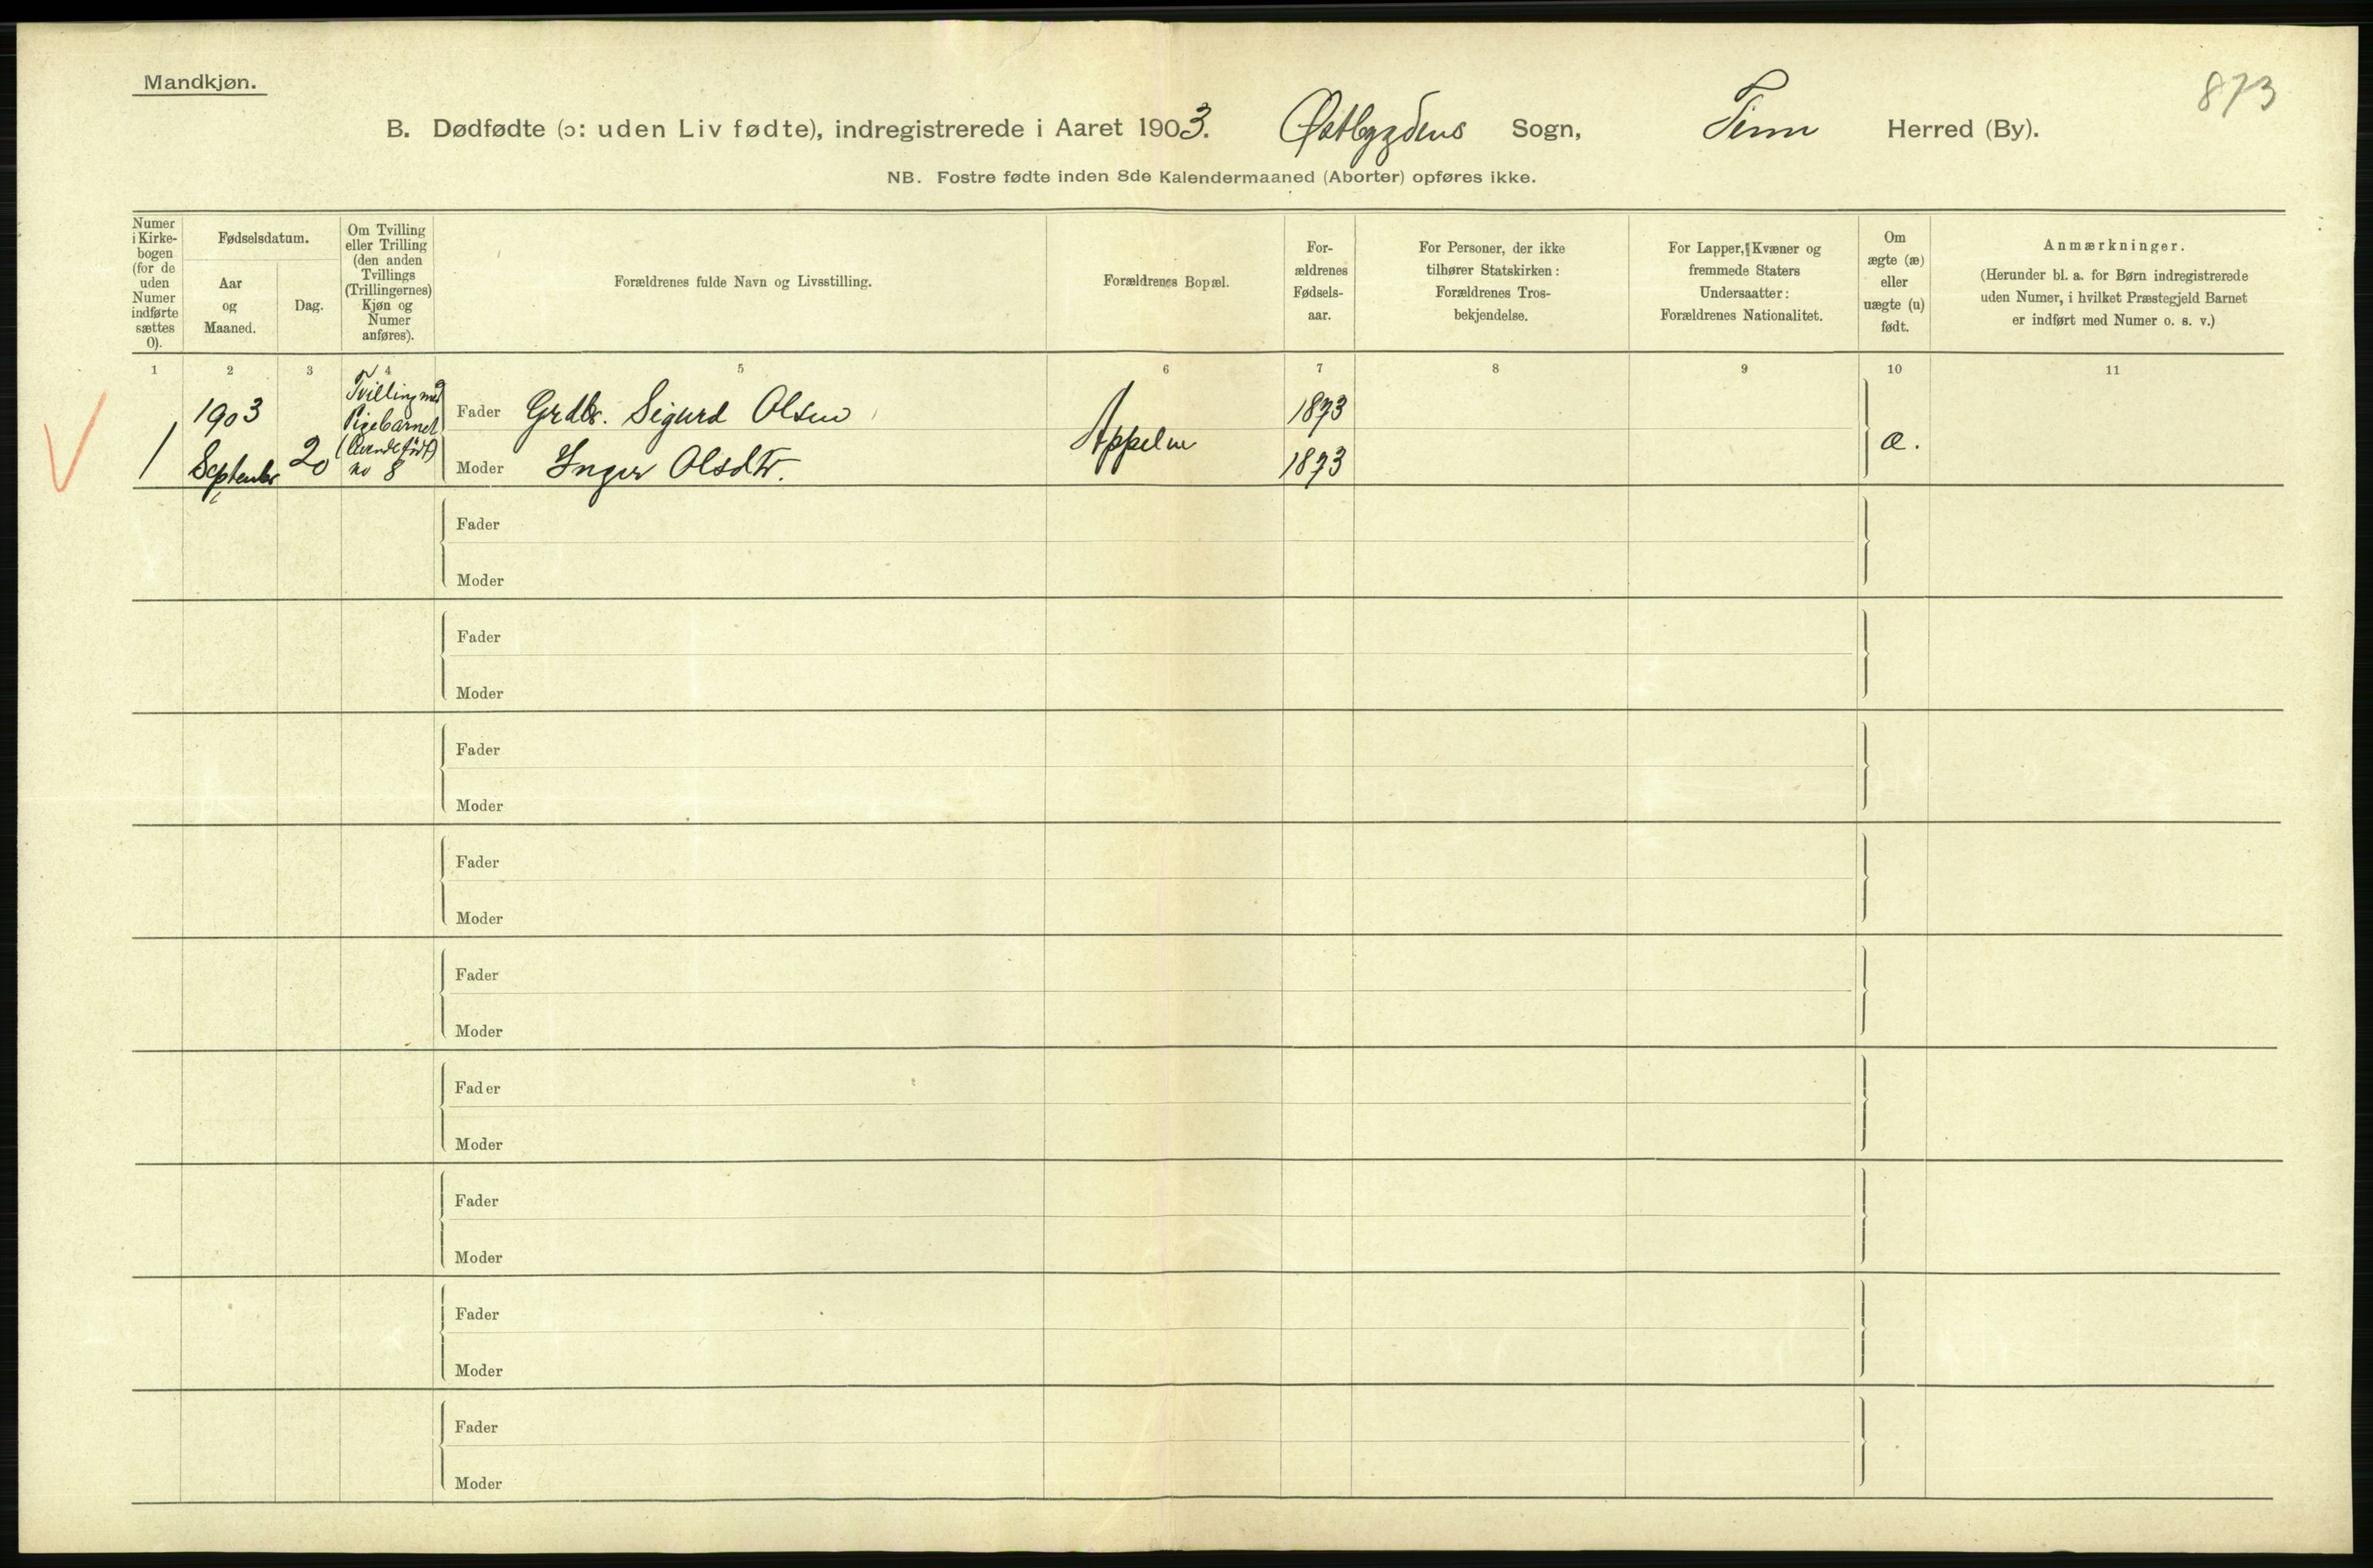 Mandkjøn.
873
B. Dødfødte (ɔ: uden Liv fødte), indregistrerede i Aaret 1903. Østbygdens Sogn, Tinn Herred (By).
NB. Fostre fødte inden 8de Kalendermaaned (Aborter) opføres ikke.
Numer
i Kirke-
bogen
(for de
uden
Numer
indførte
sættes
0).
Fødselsdatum.
Aar
og
Maaned.
Dag.
Om Tvilling
eller Trilling
(den anden
Tvillings
(Trillingernes)
Kjøn og
Numer
anføres).
Forældrenes fulde Navn og Livsstilling.
Forældrenes Bopæl.
For-
ældrenes
Fødsels-
aar.
For Personer, der ikke
tilhører Statskirken:
Forældrenes Tros-
bekjendelse.
For Lapper, Kvæner og
fremmede Staters
Undersaatter:
Forældrenes Nationalitet.
Om
ægte (æ)
eller
uægte (u)
født.
Anmærkninger.
(Herunder bl. a. for Børn indregistrerede
uden Numer, i hvilket Præstegjeld Barnet
er indført med Numer o. s. v.)
1 2 3 4 5 6 7 8 9 10 11
1
1903
September
20
Tvilling med
Pigebarnet
(levendefødt)
no 8
Fader Grdbr. Sigurd Olsen
Moder Inger Olsdtr.
Appelen
1873
1873
æ.
Fader
Moder
Fader
Moder
Fader
Moder
Fader
Moder
Fader
Moder
Fader
Moder
Fader
Moder
Fader
Moder
Fader
Moder